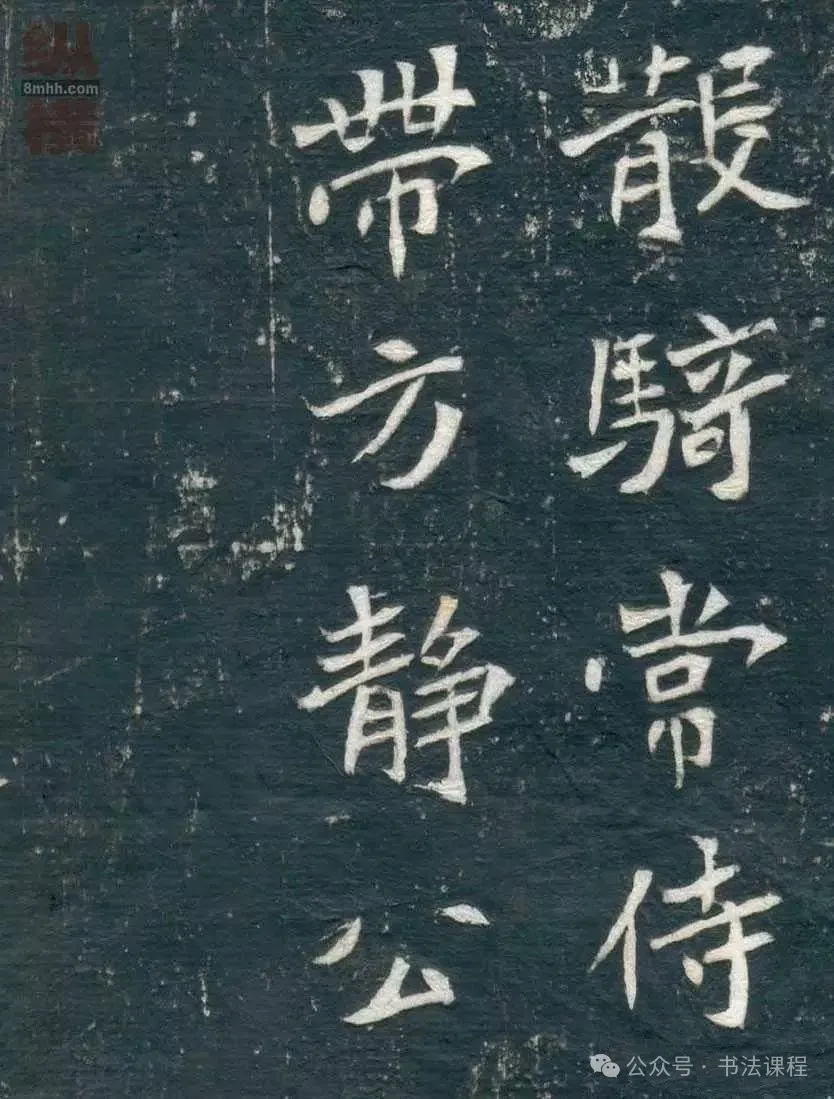 散騎常侍
帶方靜公
8mhh.com
公众号·书法课程